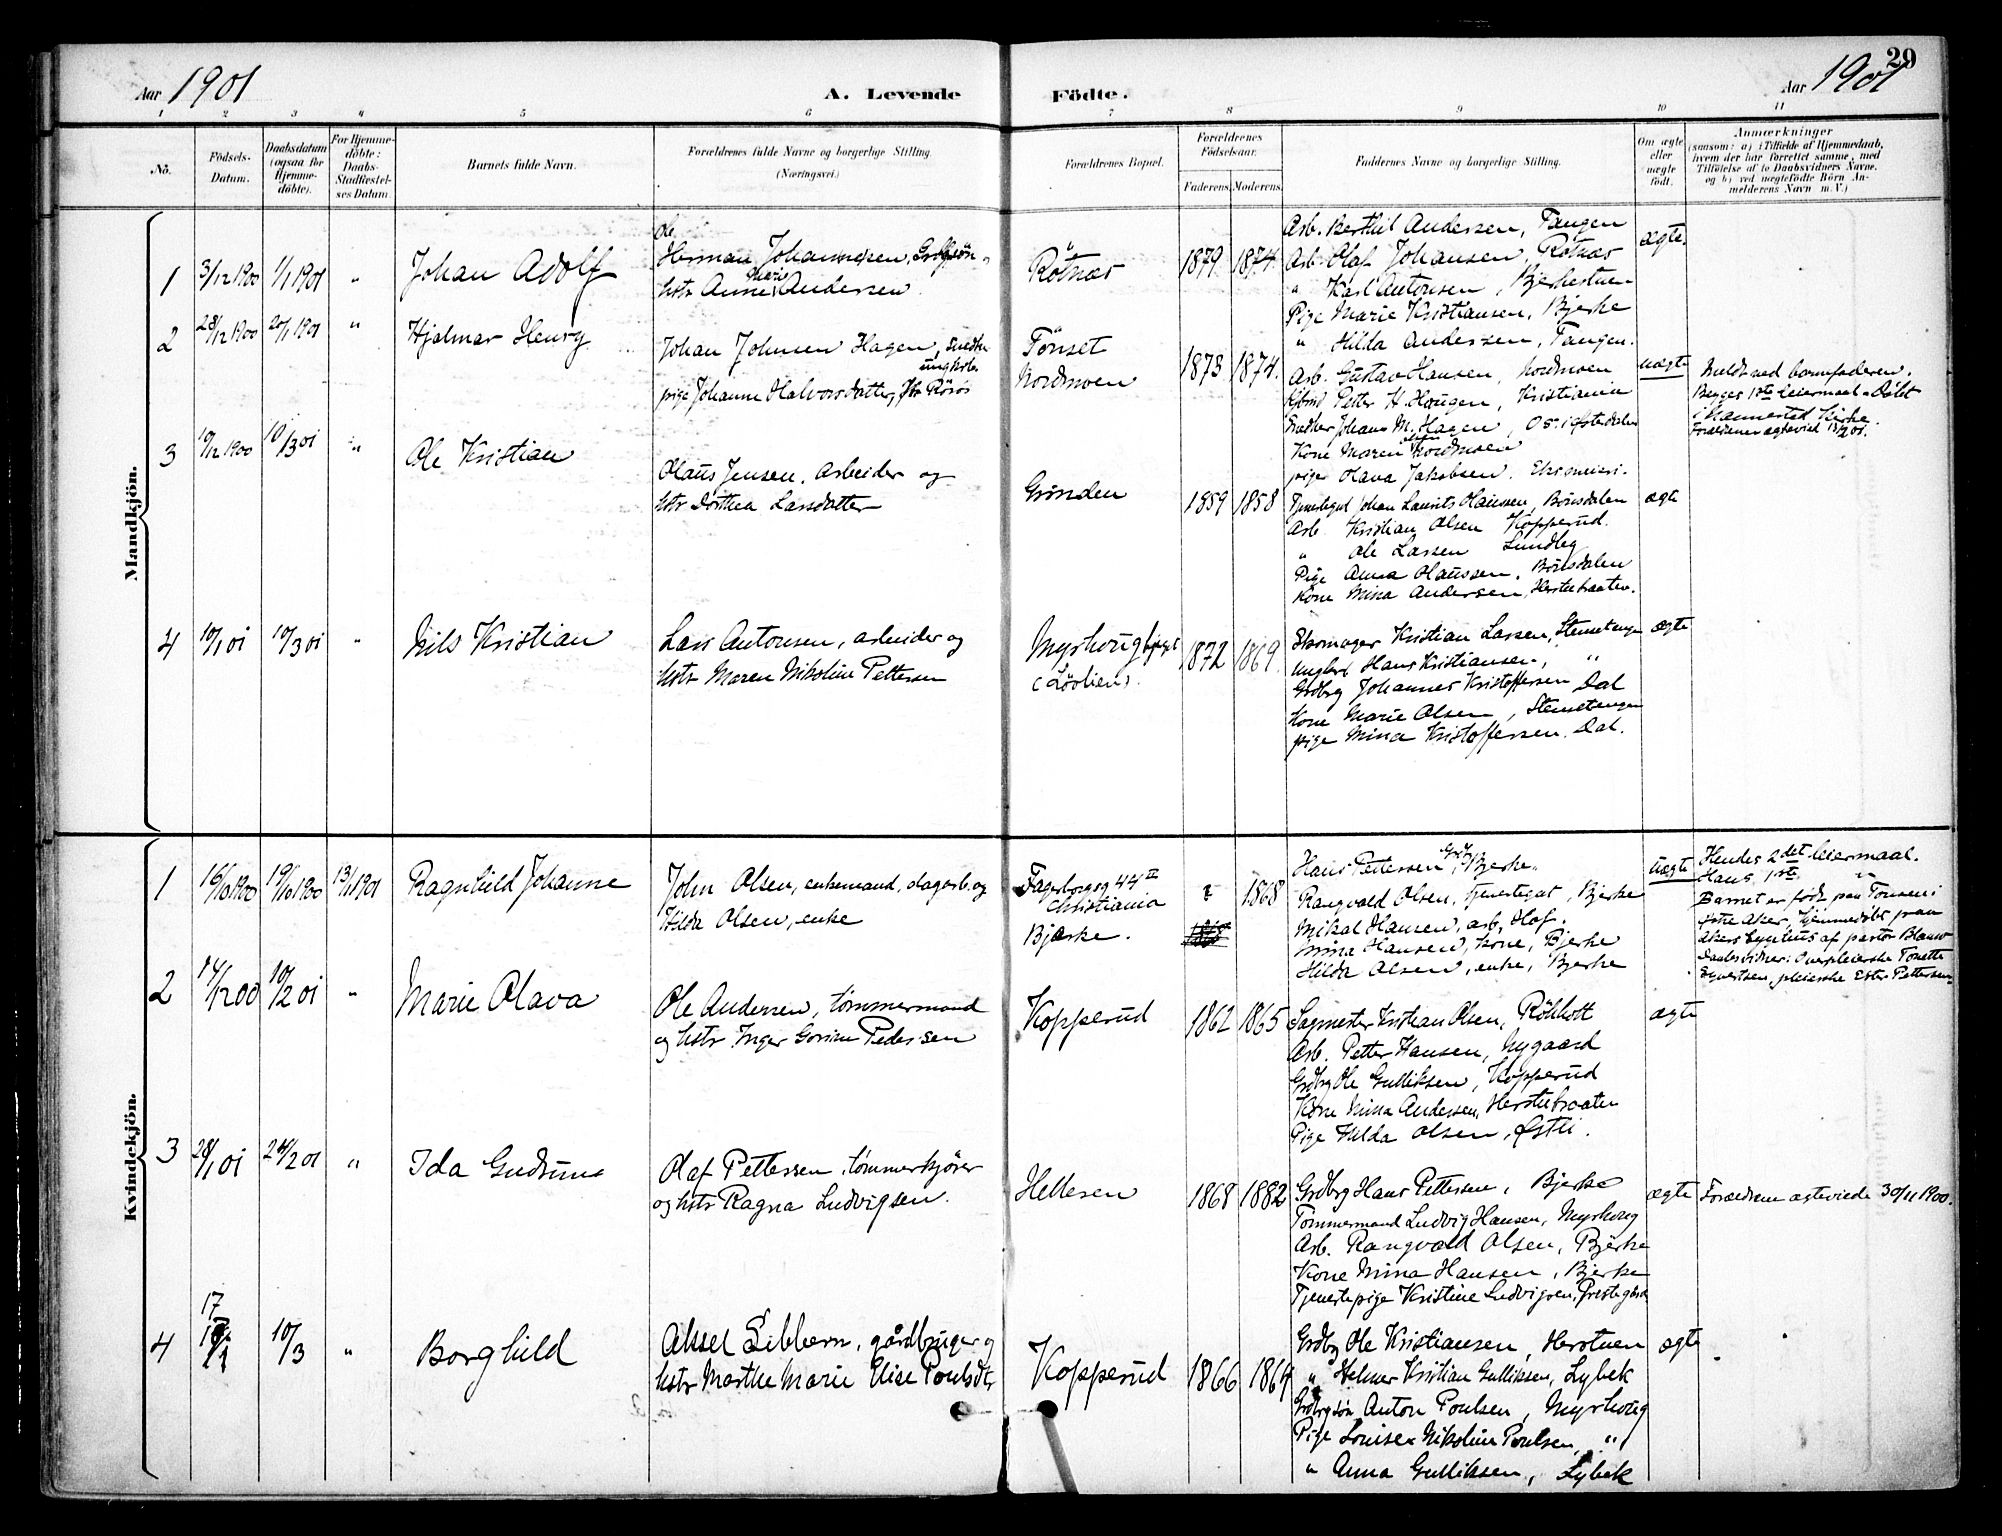 Aar 1901
A. Levende Födte.
29
Aar 1901
1 2 3 4 5 6 7 8 9 10 11
No.
Födsels-Datum.
Daabsdatum (ogsaa for Hjemme-döbte).
For Hjemme-döbte: Daabs-Stadfæstel-ses Datum.
Barnets fulde Navn.
Forældrenes fulde Navne og borgerlige Stilling. (Næringsvei.)
Forældrenes Bopæl.
Forældrenes Födselsaar.
Faderens. Moderens.
Faddernes Navne og borgerlige Stilling.
Om ægte eller uægte födt.
Anmærkninger
(saasom: a) i Tilfælde af Hjemmedaab, hvem der har forrettet samme, med Tilföielse af to Daabsvidners Navne. og b) ved uægtefödte Börn An-melderens Navn m. V.)
Mandkjön.
1 3/12 1900 1/1 1901 " Johan Adolf
Ole
Herman Johannesen, Grdbrsön
Marie
hstr Anne Andersen
Rötnæs 1879 1874
Arb. Berthil Andersen, Tangen
Arb. Olaf Johansen, Rötnæs
" Karl Antonsen, Bjerkestuen
Pige Marie Kristiansen, Bjerke
" Hilda Andersen, Tangen.
ægte.
2 28/12 1900 20/1 1901 " Hjalmar Henry
Johan Johnsen Hagen, Snedker
ungkarl
pige Johanne Halvorsdatter, fbr Röros
Tönset
Nordmoen
1873 1874.
Arb. Gustav Hansen, Nordmoen
Petter H. Haugen, Kristiania
Snedker Johans M. Hagen, Os i Østerdalen
Kone Maren Nordmoen
pige Olava Jakobsen, Eksmeieri.
uægte
Meldt ved barnefaderen.
Begges 1ste Leiermaal. Döbt
i Nannestad Kirke.
Forældrene ægteviet 13/2 01.
3 19/12 1900 10/3 01 " Ole Kristian
Olaus Jensen, arbeider og
hstr Dorthea Larsdatter
Grinden 1859 1858
Tjenestegut Johan Laurits Olaussen, Bönsdalen
Arb. Kristian Olsen Kopperud.
" Ole Larsen Lundby
Pige Anna Olaussen, Bönsdalen
Kone Mina Andersen, Herstubraaten.
ægte
4 10/1 01 10/3 01 " Nils Kristian
Lars Antonsen, arbeider og
hstr Maren Nikoline Pettersen
Myrhoug
(Lövlien)
1872 1869
Skomager Kristian Larsen, Stensetengen
Ungkarl Hans Kristiansen, "
Grdbrg Johannes Kristoffersen Dal
Kone Marie Olsen, Stensetengen
pige Mina Kristoffersen. Dal.
ægte
Kvindekjön.
1 16/10 1900 19/10 1900 13/1 1901 Ragnhild Johanne
John Olsen, enkemand, dagarb. og
Hilda Olsen, enke
Fagerborgsg 44 IV
Christiania
Bjerke.
? 1868
Hans Pettersen, Grdb, Bjerke.
Rangvald Olsen, tjenestegut, Bjerke
Mikal Hansen, arb, Hof.
Mina Hansen, kone, Bjerke
Hilda Olsen, enke, Bjerke
uægte
Hendes 2det leiermaal.
Hans 1ste "
Barnet er född paa Tonsen i
Østre Aker, hjemmedöbt paa
Akers Sygehus af pastor Blauw
Daabsvidner: Overpleierske Tonette
Syvertsen, pleierske Ester Pettersen
2 14/12 00 10/2 01 " Marie Olava
Ole Andersen, tömmermand
og hstr Inger Gorine Pedersen
Kopperud 1862 1865
Sagmester Kristian Olsen, Röhholt
Arb. Petter Hansen, Nygaard
Grdbrg Ole Gulliksen, Kopperud
Kone Mina Andersen, Herstubraaten
Pige Hilda Olsen, Østli.
ægte
3 28/1 01 24/2 01 " Ida Gudrune
Olaf Pettersen, tömmerkjörer
og hstr Ragna Ludvigsen.
Hellesen 1868 1882
Grdbrg Hans Pettersen, Bjerke
Tömmermand Ludvig Hansen, Myrhoug
Arb. Rangvald Olsen, Bjerke
Kone Mina Hansen, Bjerke
Tjenestepige Kristine Ludvigsen, Prestegård
ægte
Forældrene ægteviede 30/11 1900.
4 17/1 10/3 " Borghild
Aksel Sibbern, gårdbruger og
hstr Marthe Marie Elise Poulsdtr
Kopperud 1866 1864
Grdbrg Ole Kristiansen, Herstuen
" Helmer Kristian Gulliksen, Lybek
Grdbrgsön Anton Poulsen, Myrhoug
Pige Louise Nikoline Poulsen, "
" Anna Gulliksen, Lybek
ægte